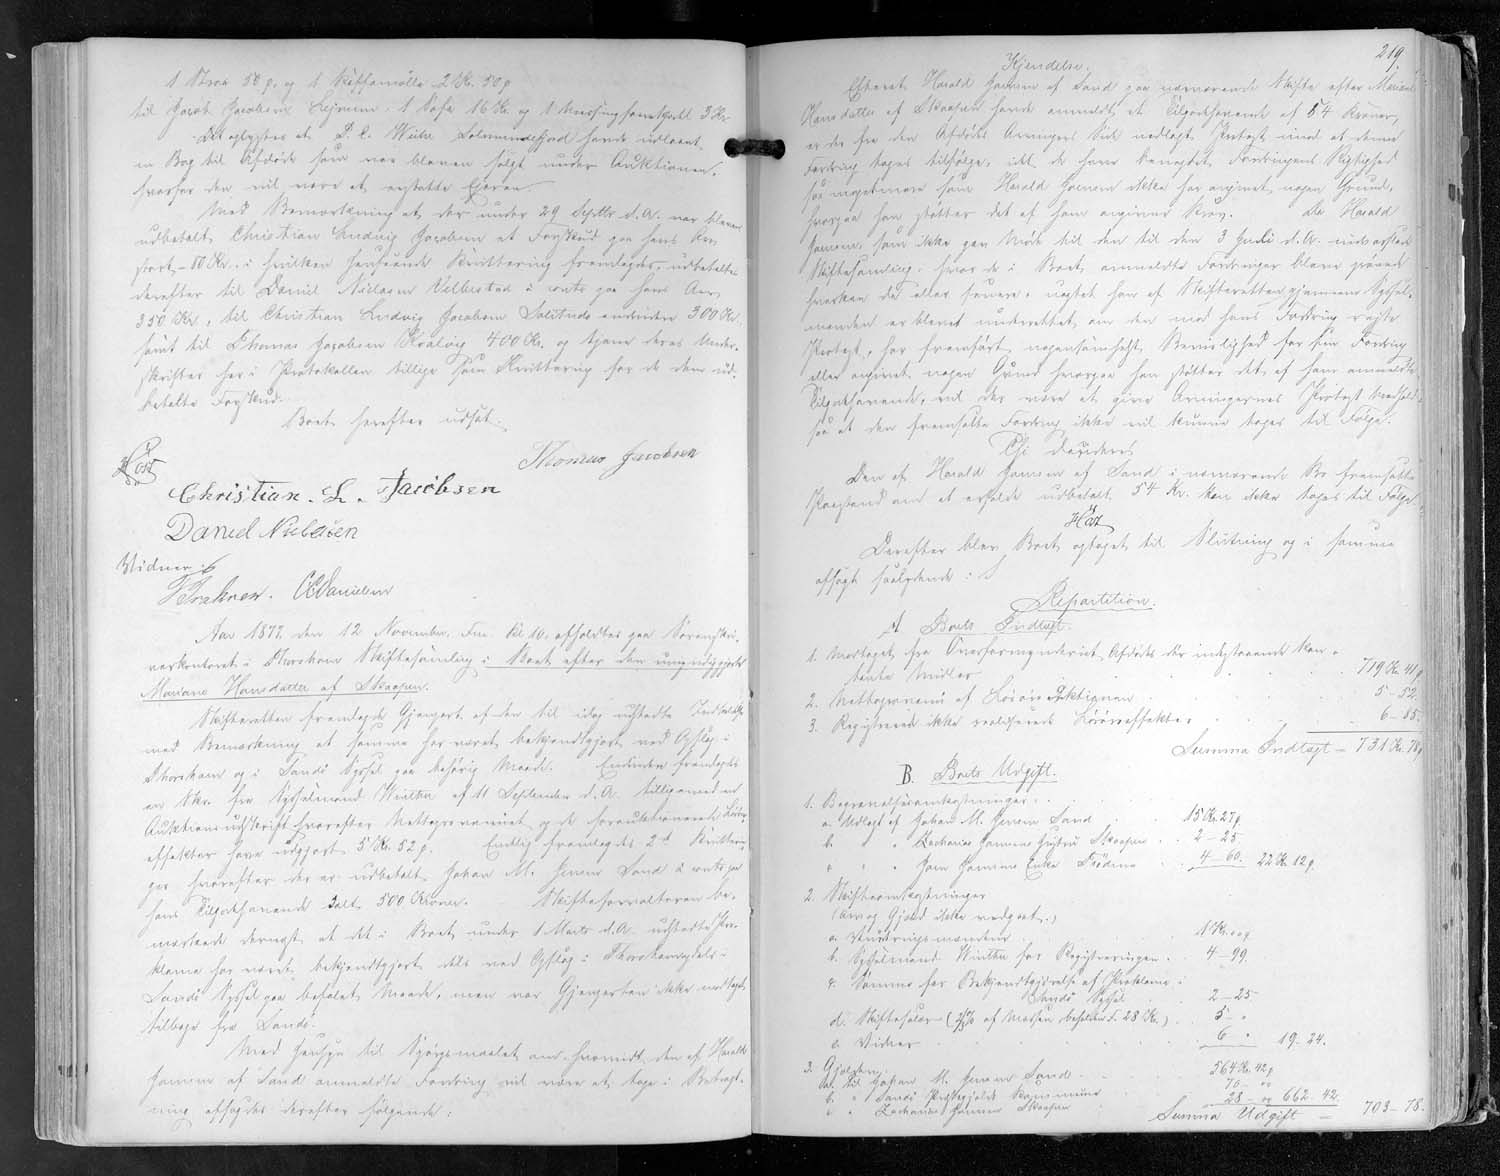 1 Krog 50 p. og 1 Kaffemølle 2 Kr. 50 p
til Jacob Jacobsen Lejnum. 1 Sofa 16 Kr. og 1 Messingfarvekjedel 3 Kr.
Det oplystes at P. C. Weihe Solmundefjord havde udlaant
en Bog til Afdøde som var bleven solgt under Auktionen,
hvorfor den vil være at erstatte Ejeren.
Med Bemærkning at der under 29 Septbr. d. A. var bleven
udbetalt Christian Ludvig Jacobsen et Forskud paa hans Arv
stort 80 Kr. i hvilken Henseende Kvittering fremlagdes, udbetaltes
derefter til Daniel Nielsen Velbestad à conto paa hans Arv
350 Kr., til Christian Ludvig Jacobsen Solitude endvidere 300 Kr.
samt til Thomas Jacobsen Kvalvig 400 Kr. og tjene deres Under-
skrifter her i Protokollen tillige som Kvittering for de dem ud-
betalte Forskud.
Boet herefter udsat.
Høst
Thomas Jacobsen
Christian. L. Jacobsen
Daniel Nielsen
Vidner
Aar 1877. den 12 November. Fm. Kl 10. afholdtes paa Sorenskri-
verkontoret i Thorshavn Skiftesamling i Boet efter den umyndiggjorte
Mariane Hansdatter af Skaapen.
Skifteretten fremlagde Gjenpart af den til idag udstedte Indkaldelse
med Bemærkning at samme har været bekjendtgjort ved Opslag i
Thorshavn og i Sandø Syssel paa behørig Maade. Endvidere fremlagdes
en Skr. fra Sysselmand Winther af 11 September d. A. tilligemed en
Auktionsudskrift hvorefter Nettoprovenuet af de forauktionerede Løsøre-
effekter have udgjort 5 Kr. 52 p. Endelig fremlagdes 2de Kvitterin-
ger hvorefter der er udbetalt Johan M. Jensen Sand à conto paa
hans Tilgodehavende ialt 500 Kroner. Skifteforvalteren be-
mærkede dernæst at det i Boet under 1 Marts d. A. udstedte Pro-
klama har været bekjendtgjort dels ved Opslag i Thorshavn dels i
Sandø Syssel paa befalet Maade, men var Gjenparten ikke modtaget
tilbage fra Sandø.
Med Hensyn til Spørgsmaalet om hvorvidt den af Harald
Jensen af Sand anmeldte Fordring vil være at tage i Betragt-
ning afsagdes derefter følgende:
219.
Kjendelse.
Efterat Harald Joensen af Sand paa nærværende Skifte efter Mariane
Hansdatter af Skaapen havde anmeldt et Tilgodehavende af 54 Kroner,
er der fra den Afdødes Arvingers Side nedlagt Protest imod at denne
Fordring tages tilfølge, idet de have benægtet Fordringens Rigtighed
saameget mere som Harald Joensen ikke har angivet nogen Grund,
hvorpaa han støtter det af ham angivne Krav. Da Harald
Joensen som ikke gav Møde til den til den 3 Juli d. A. indvarslede
Skiftesamling, hvor de i Boet anmeldte Fordringer bleve prøvede
hverken da eller senere, uagtet han af Skifteretten gjennem Syssel-
manden er blevet underrettet om den mod hans Fordring rejste
Protest, har fremført nogensomhelst Bevislighed for sin Fordring
eller angivet nogen Grund hvorpaa han støtter det af ham anmeldte
Tilgodehavende, vil der være at give Arvingernes Protest Medhold
saa at den fremsatte Fordring ikke vil kunne tages til Følge.
Thi eragtes
Den af Harald Joensen af Sand i nærværende Bo fremsatte
Paastand om at erholde udbetalt 54 Kr. kan ikke tages til Følge.
Høst
Derefter blev Boet optaget til Slutning og i samme
afsagt saalydende:
Repartition.
A Boets Indtægt.
1. Modtaget fra Overformynderiet Afdødes der indestaaende kon-
tante Midler . . . 719 Kr. 41 p
2. Nettoprovenu af Løsøre Auktionen . . . 5 - 52.
3. Registrerede ikke realiserede Løsøreeffekter . . . 6 - 85.
Summa Indtægt - 731 Kr. 78 p
B. Boets Udgift.
1. Begravelsesomkostninger:
a. Udlagt af Johan M. Jensen Sand . . 15 Kr. 27 p.
b. " " Zacharias Joensen Hustru Skaapen . . 2 - 25
c " " Joen Joensens Enke . . 4 - 60. 22 Kr. 12 p.
2. Skifteomkostninger
(Arv og Gjæld ikke vedgaaet.)
a. Vurderingsmændene . . 1 Kr. 00 p
b. Sysselmand Winther for Registreringen . . 4 - 99.
c. Samme for Bekjendtgjørelse af Proklama i
Sandø Syssel . . 2 - 25
d. Skiftesalær . . 5 - "
e. Vidner . . 6 " 19 - 24.
3. Gjælden.
a. til Johan M. Jensen Sand . . 564 Kr. 42 p
b. " Sandø Præstegjælds Kommune . . 70 - "
c " Zacharias Joensen Skaapen . . 28 - " 662 - 42.
Summa Udgift - 703 - 78.